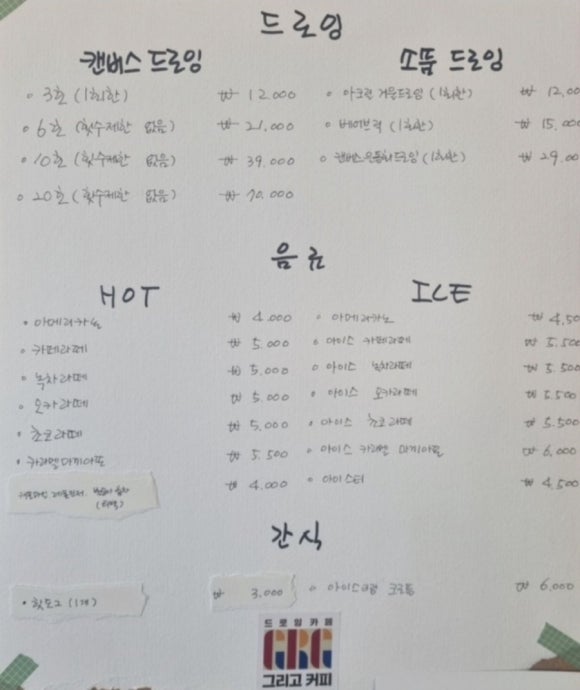 드로잉
캔버스 드로잉
소품 드로잉
• 3호 (1회한) ₩ 12.000
• 6호 (횟수제한 없음) ₩ 21.000
• 10호 (횟수제한 없음) ₩ 39.000
• 20호 (횟수제한 없음) ₩ 70.000
• 아크릴 거울드로잉 (1회한) ₩ 12.00
• 베이브릭 (1회한) ₩ 15.00
• 캔버스운동화드로잉 (1회한) ₩ 29.00
음료
HOT
ICE
• 아메리카노 ₩ 4.000
• 카페라떼 ₩ 5.000
• 녹차라떼 ₩ 5.000
• 모카라떼 ₩ 5.000
• 초코라떼 ₩ 5.000
• 카라멜마끼아또 ₩ 5.500
(티백) ₩ 4.000
• 아메리카노 ₩ 4.50
• 아이스 카페라떼 ₩ 5.500
• 아이스 녹차라떼 ₩ 5.500
• 아이스 모카라떼 ₩ 5.500
• 아이스 초코라떼 ₩ 5.500
• 아이스 카라멜 마끼아또 ₩ 6,000
• 아이스티 ₩ 4,500
간식
• 핫도그 (1개) ₩ 3.000
• 아이스크림 크로플 ₩ 6.000
드로잉카페
GRG
그리고 커피